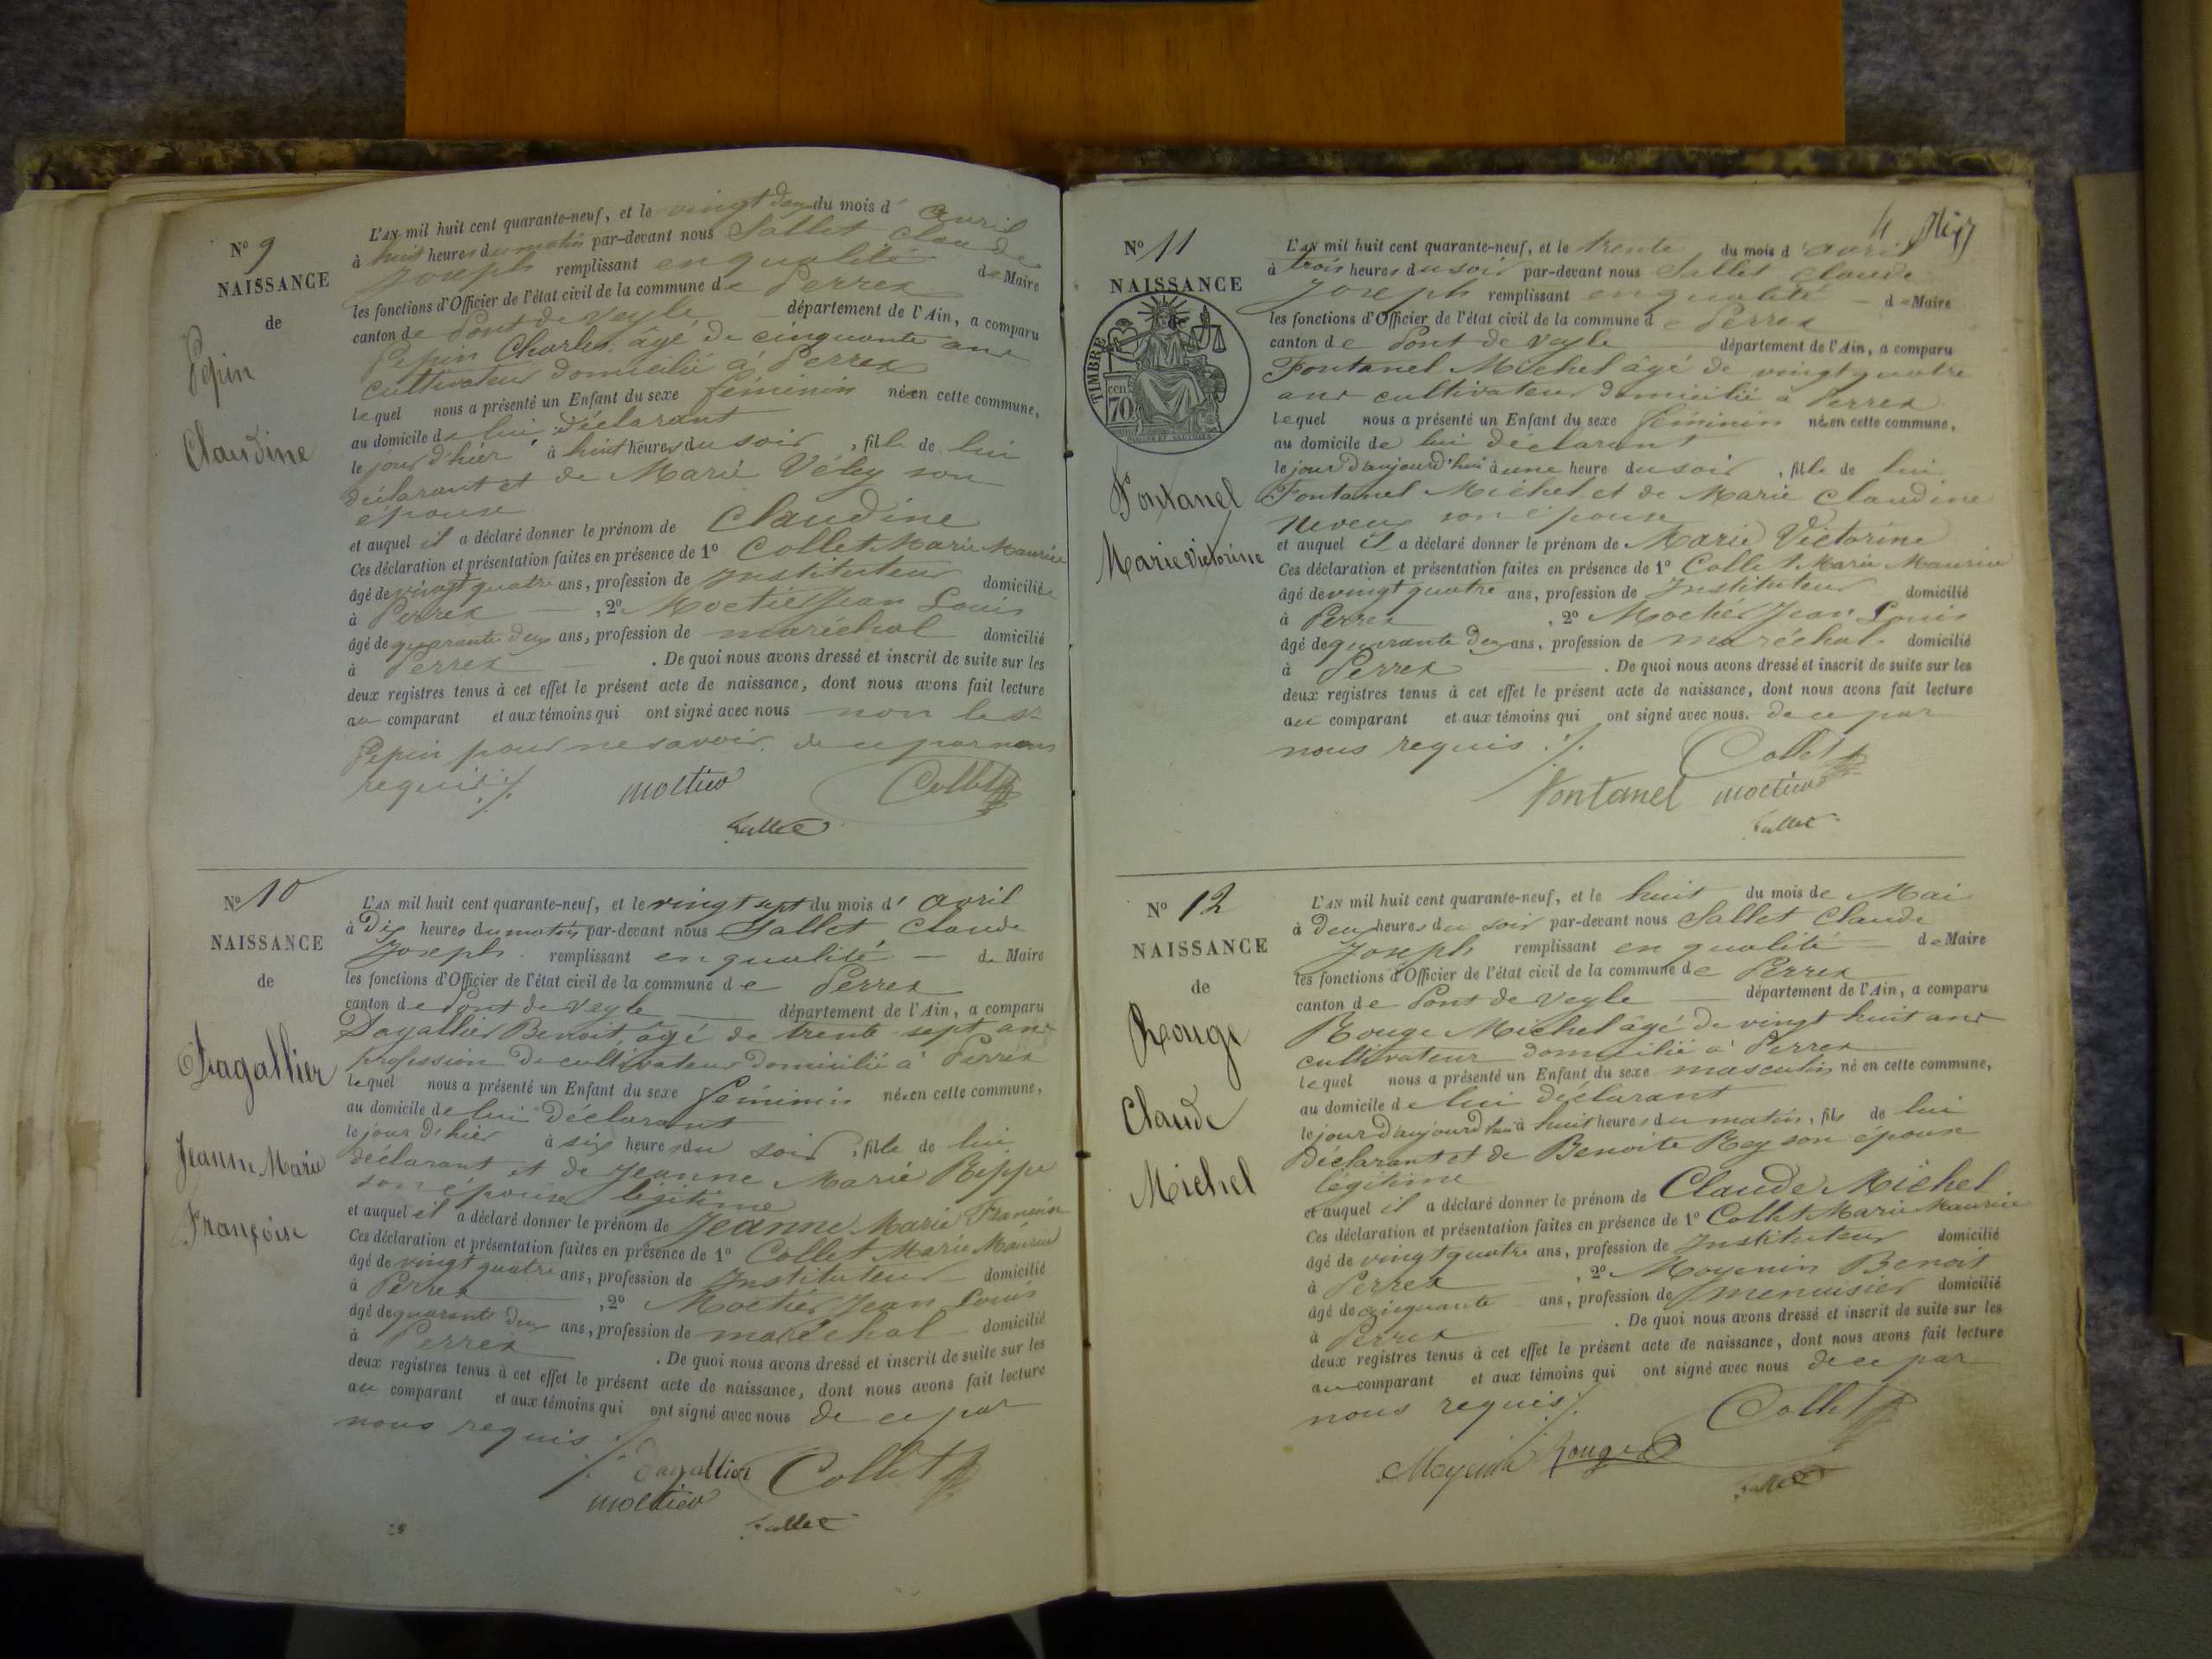 N° 9
NAISSANCE
de
Pepin
Claudine
L'AN mil huit cent quarante-neuf, et le vingt deux du mois d' avril
à huit heures du matin par-devant nous Sallet Claude
Joseph remplissant en qualité de Maire
les fonctions d'Officier de l'état civil de la commune de Perrex
canton de Pont de Veyle département de l'Ain, a comparu
Pepin Charles, âgé de cinquante ans
cultivateur domicilié à Perrex
lequel nous a présenté un Enfant du sexe féminin née en cette commune,
au domicile de lui déclarant
le jour d'hier à huit heures du soir, fille de lui
déclarant et de Marie Véley son
épouse
et auquel il a déclaré donner le prénom de Claudine
Ces déclaration et présentation faites en présence de 1° Collet Marie Maurice
âgé de vingt quatre ans, profession de Instituteur domicilié
à Perrex , 2° Moctier Jean Louis
âgé de quarante deux ans, profession de maréchal domicilié
à Perrex . De quoi nous avons dressé et inscrit de suite sur les
deux registres tenus à cet effet le présent acte de naissance, dont nous avons fait lecture
au comparant et aux témoins qui ont signé avec nous non le Sr
Pepin pour ne savoir de ce par nous
requis ./.
moctier Collet
Sallet
N° 10
NAISSANCE
de
Dagallier
Jeanne Marie
Françoise
L'AN mil huit cent quarante-neuf, et le vingt sept du mois d' avril
à Dix heures du matin par-devant nous Sallet Claude
Joseph remplissant en qualité de Maire
les fonctions d'Officier de l'état civil de la commune de Perrex
canton de Pont de Veyle département de l'Ain, a comparu
Dagallier Benoit, âgé de trente sept ans
profession de cultivateur domicilié à Perrex
lequel nous a présenté un Enfant du sexe féminin née en cette commune,
au domicile de lui Déclarant
le jour d'hier à six heures du soir, fille de lui
déclarant et de Jeanne Marie Beppe
son épouse légitime
et auquel il a déclaré donner le prénom de Jeanne Marie Francoise
Ces déclaration et présentation faites en présence de 1° Collet Marie Maurice
âgé de vingt quatre ans, profession de Instituteur domicilié
à Perrex , 2° Moctier Jean Louis
âgé de quarante deux ans, profession de maréchal domicilié
à Perrex . De quoi nous avons dressé et inscrit de suite sur les
deux registres tenus à cet effet le présent acte de naissance, dont nous avons fait lecture
au comparant et aux témoins qui ont signé avec nous de ce par
nous requis ./.
Dagallier Collet
moctier
Sallet
4
N° 11
NAISSANCE
de
TIMBRE
cen
70
Fontanel
Marie Victorine
L'AN mil huit cent quarante-neuf, et le trente du mois d'avril
à trois heures du soir par-devant nous Sallet Claude
Joseph remplissant en qualité de Maire
les fonctions d'Officier de l'état civil de la commune de Perrex
canton de Pont de Veyle département de l'Ain, a comparu
Fontanel Michel âgé de vingt quatre
ans cultivateur domicilié à Perrex
lequel nous a présenté un Enfant du sexe féminin née en cette commune,
au domicile de lui déclarant
le jour d'aujourd'hui à une heure du soir, fille de lui
Fontanel Michel et de Marie Claudine
Neveu son épouse
et auquel il a déclaré donner le prénom de Marie Victorine
Ces déclaration et présentation faites en présence de 1° Collet Marie Maurice
âgé de vingt quatre ans, profession de Instituteur domicilié
à Perrex , 2° Moctier Jean Louis
âgé de quarante deux ans, profession de maréchal domicilié
à Perrex . De quoi nous avons dressé et inscrit de suite sur les
deux registres tenus à cet effet le présent acte de naissance, dont nous avons fait lecture
au comparant et aux témoins qui ont signé avec nous. de ce par
nous requis ./.
Collet
Fontanel moctier
Sallet
N° 12
NAISSANCE
de
Rouge
Claude
Michel
L'AN mil huit cent quarante-neuf, et le huit du mois de Mai
à Deux heures du soir par-devant nous Sallet Claude
Joseph remplissant en qualité de Maire
les fonctions d'Officier de l'état civil de la commune de Perrex
canton de Pont de Veyle département de l'Ain, a comparu
Rouge Michel âgé de vingt huit ans
cultivateur domicilié à Perrex
lequel nous a présenté un Enfant du sexe masculin né en cette commune,
au domicile de lui déclarant
le jour d'aujourd'hui à huit heures du matin, fils de lui
Déclarant et de Benoite Rey son épouse
légitime
et auquel il a déclaré donner le prénom de Claude Michel
Ces déclaration et présentation faites en présence de 1° Collet Marie Maurice
âgé de vingt quatre ans, profession de Instituteur domicilié
à Perrex , 2° Moyenin Benoit
âgé de cinquante ans, profession de menuisier domicilié
à Perrex . De quoi nous avons dressé et inscrit de suite sur les
deux registres tenus à cet effet le présent acte de naissance, dont nous avons fait lecture
au comparant et aux témoins qui ont signé avec nous de ce par
nous requis ./.
Collet
Moyenin Rouge
Sallet